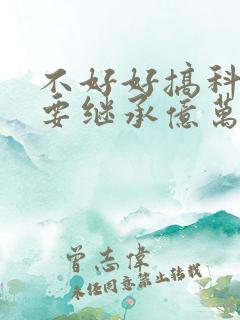 不好好搞科
要继承億萬
曾志偉
未经同意禁止转载